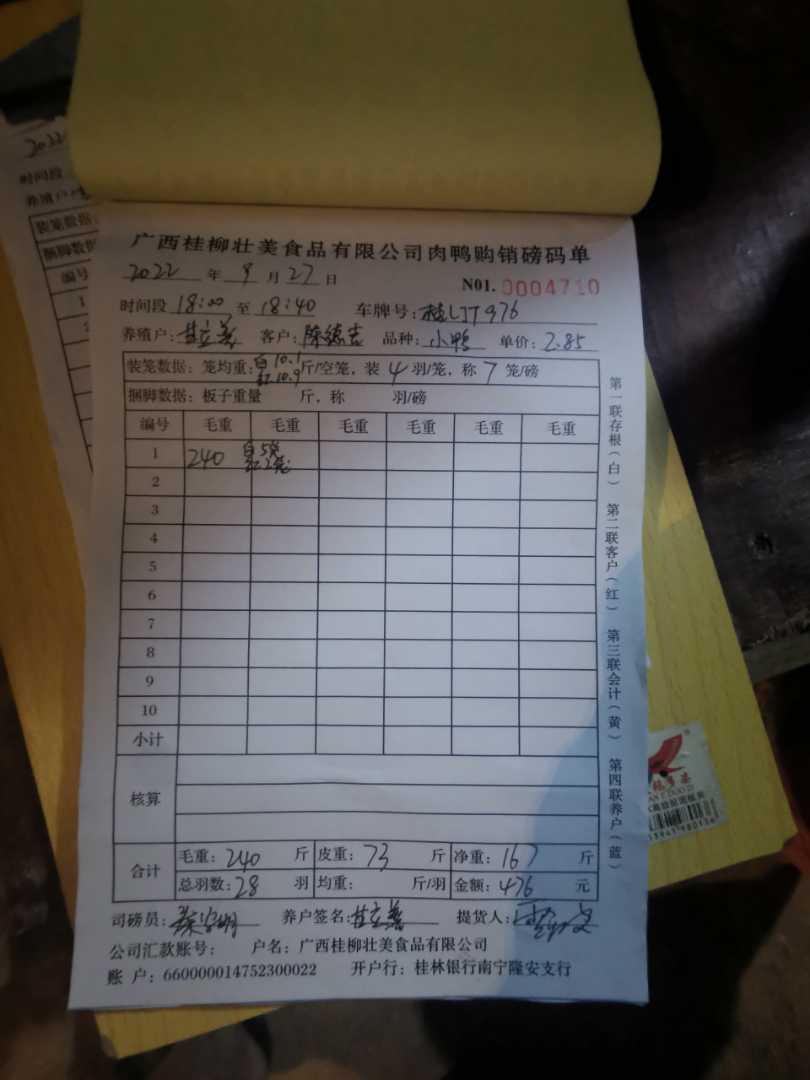 广西桂柳壮美食品有限公司肉鸭购销磅码单
2022 年 9 月 27 日 N01. 0004710
时间段 18:00 至 18:40 车牌号: 桂LJT976
养殖户: 甘立善 客户: 陈德吉 品种: 小鸭 单价: 2.85
装笼数据: 笼均重: 白10.1 红10.9 斤/空笼, 装 4 羽/笼, 称 7 笼/磅
捆脚数据: 板子重量 斤, 称 羽/磅
编号 毛重 毛重 毛重 毛重 毛重 毛重
1 240 白5笼 红2笼
2
3
4
5
6
7
8
9
10
小计
核算
合计 毛重: 240 斤 皮重: 73 斤 净重: 167 斤
总羽数: 28 羽 均重: 斤/羽 金额: 476 元
司磅员: 养户签名: 甘立善 提货人:
公司汇款账号: 户名: 广西桂柳壮美食品有限公司
账 户: 660000014752300022 开户行: 桂林银行南宁隆安支行
第一联存根(白) 第二联客户(红) 第三联会计(黄) 第四联养户(蓝)
2022
时间段
养殖户
装笼数据
捆脚数据
编号
1